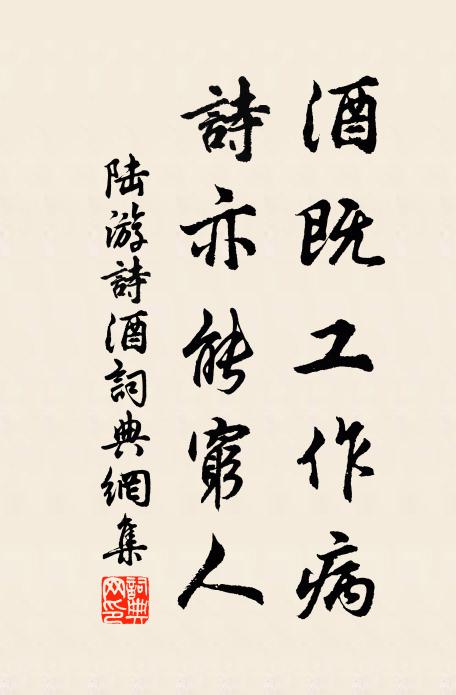 酒既工作病
詩亦能窮人
陆游詩酒詞典網集
詞典网印